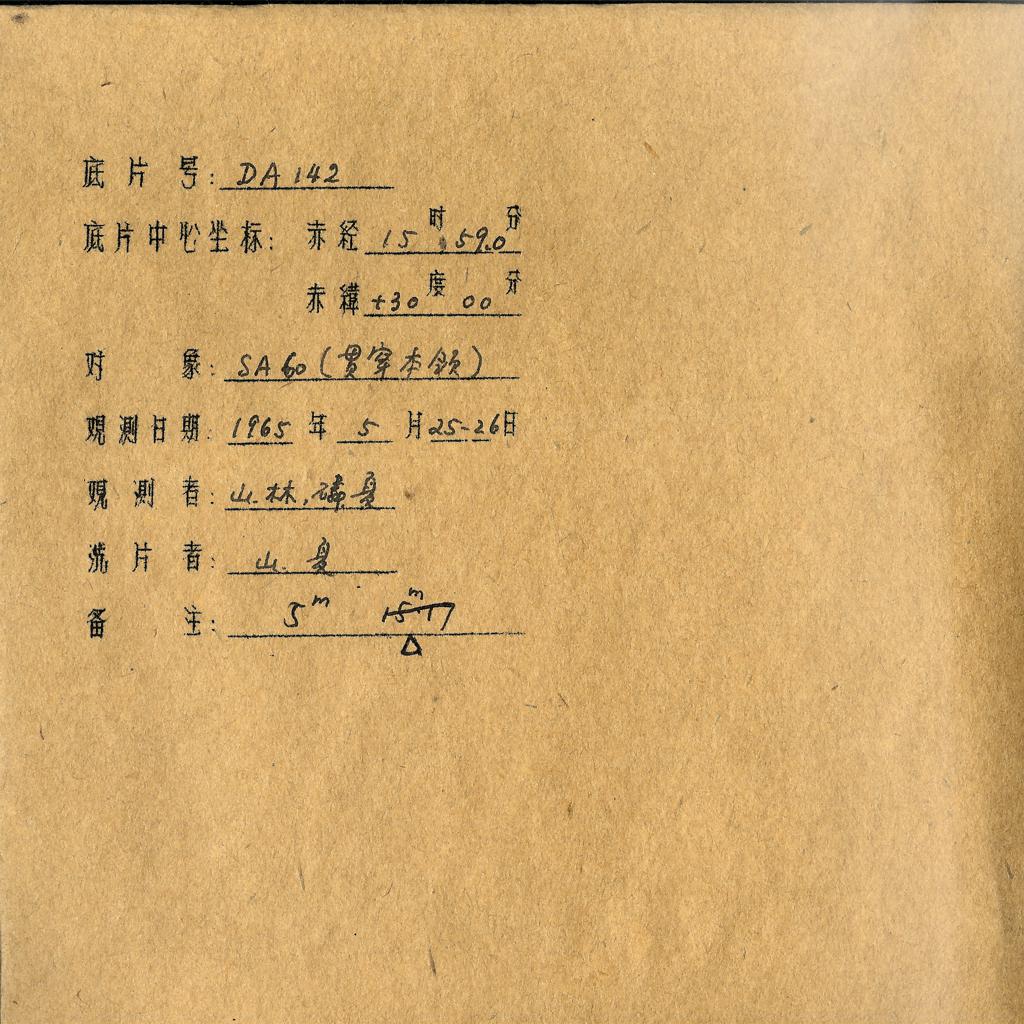 底片号: DA 142
底片中心坐标: 赤经 15 时 59.0 分
赤緯 +30 度 00 分
对象: SA 60 (贯穿本领)
观测日期: 1965 年 5 月 25-26 日
观测者: 山.林.磷.夏
洗片者: 山.夏
备注: 5m